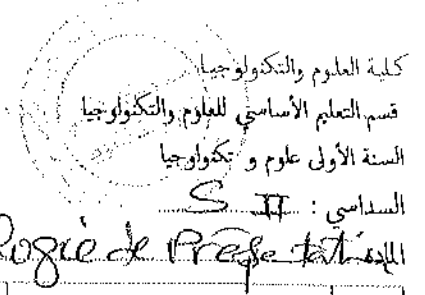 كلية العلوم والتكنولوجيا
قسم التعليم الأساسي للعلوم والتكنولوجيا
السنة الأولى علوم و تكنولوجيا
السداسي : S II
 logie de